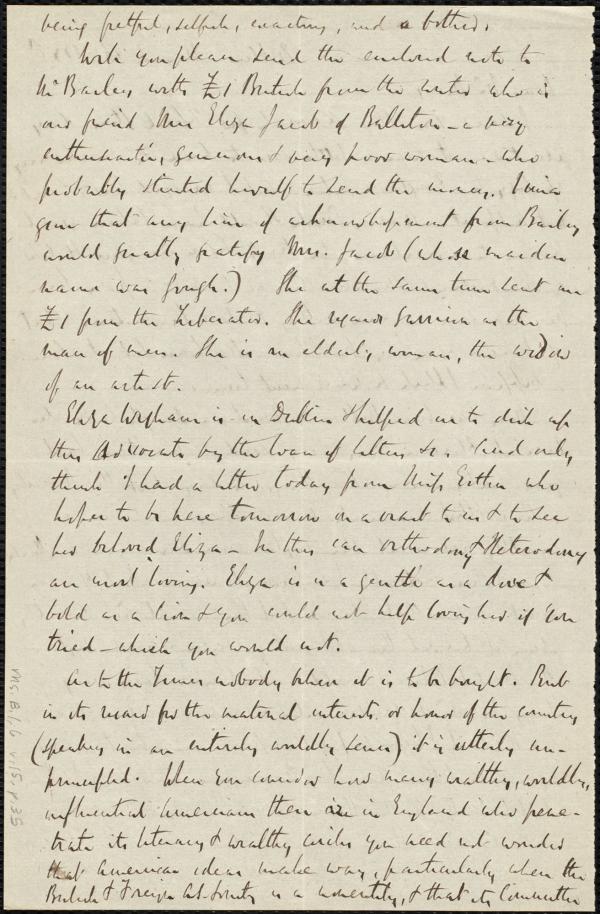 being fretful, selfish, exacting, and a bother.
Will you please send the enclosed note to
Mr Bailey with £1 British from the writer who is
our friend Mrs Eliza Jacob of Ballitore - a very
enthusiastic, generous & very poor woman - who
probably stinted herself to send the money. I
am that any line of acknowledgement from Bailey
would greatly gratify Mrs. Jacob (whose maiden
name was Gough.) She at the same time sent me
£1 for the Liberator. She regards Garrison as the
man of men. She is an elderly woman, the widow
of an artist.
Eliza Wigham is in Dublin & helped us to dish up
this Advocate by the loan of letters &c. And only
think I had a letter today from Miss Estlin who
hopes to be here tomorrow on a visit to us & to see
her beloved Eliza - In this case orthodoxy & Heterodoxy
are most loving. Eliza is as gentle as a dove &
bold as a lion & you could not help loving her if you
tried - which you would not.
As to the Times nobody believes it is to be bought. But
in its regard for the material interests or honor of the country
(speaking in an entirely worldly sense) it is utterly un-
principled. When you consider how many wealthy, worldly,
influential Americans there are in England who pene-
trate its literary & wealthy circles you need not wonder
that American ideas make way, particularly when the
British & Foreign A.S. Society is a nonentity, & that its Committee
MS. B.1.6 v.15, p.35